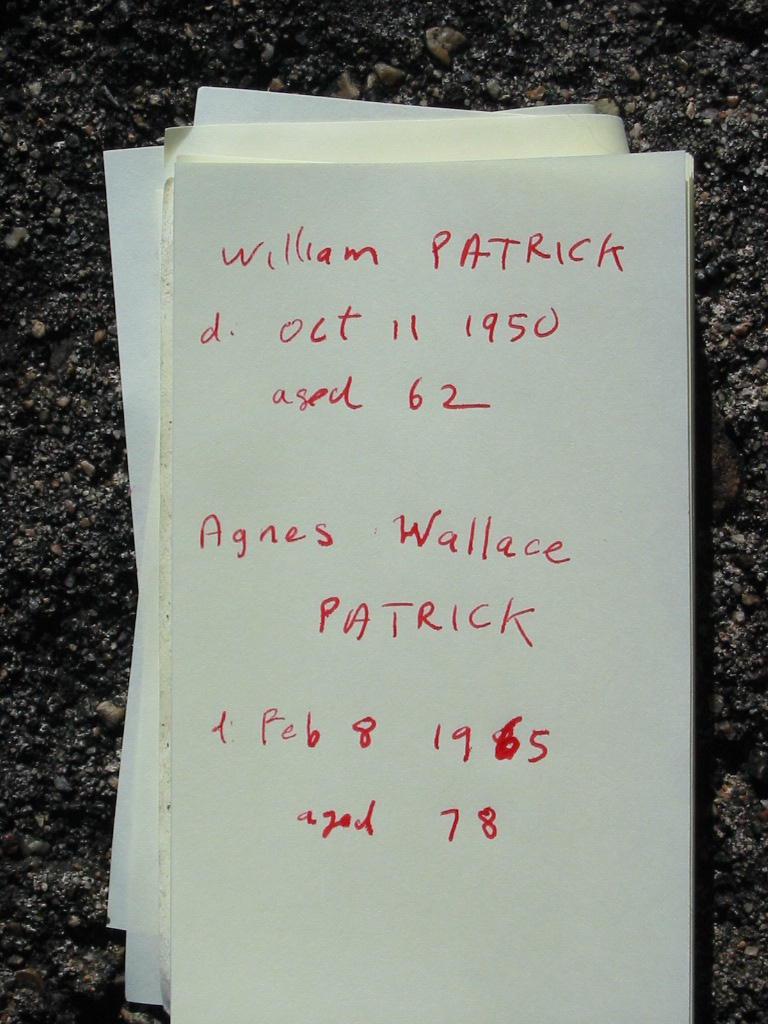 William PATRICK
d. Oct 11 1950
aged 62
Agnes Wallace
PATRICK
d. Feb 8 1965
aged 78